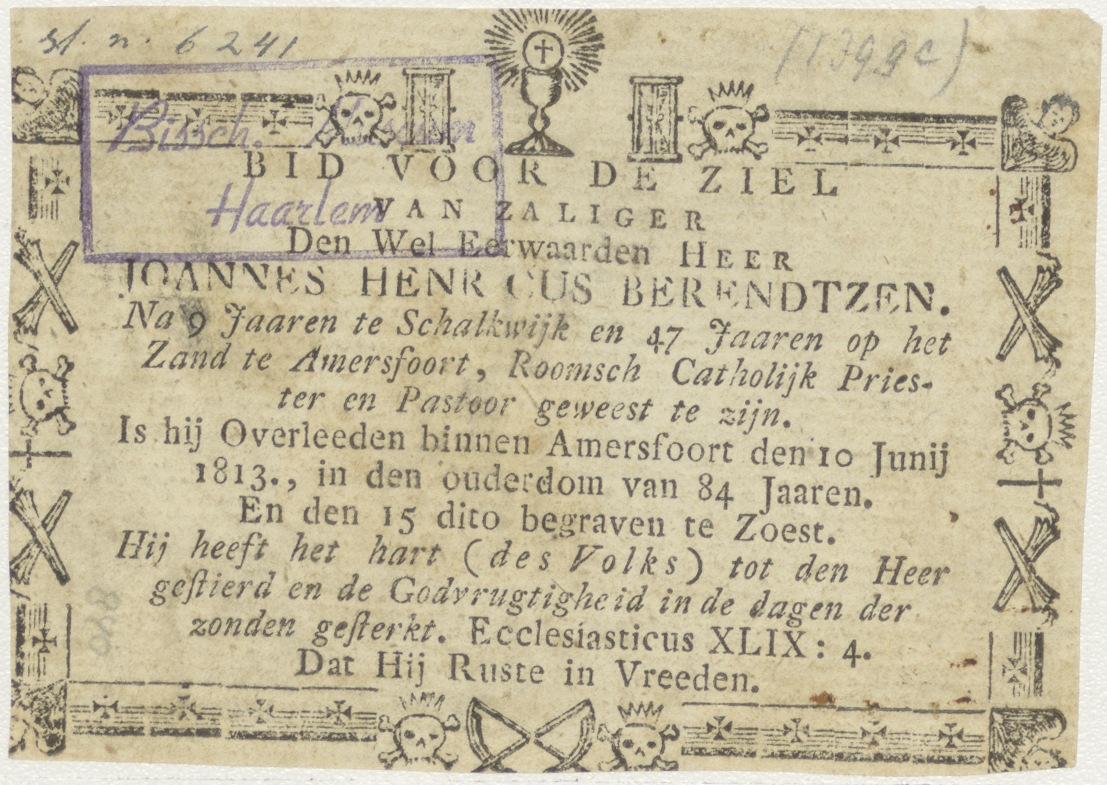 st. n. 6241
(1399c)
Bissch. Museum
Haarlem
BID VOOR DE ZIEL
VAN ZALIGER
Den Wel Eerwaarden HEER
JOANNES HENRICUS BERENDTZEN.
Na 9 Jaaren te Schalkwijk en 47 Jaaren op het
Zand te Amersfoort, Roomsch Catholijk Pries-
ter en Pastoor geweest te zijn.
Is hij Overleeden binnen Amersfoort den 10 Junij
1813., in den ouderdom van 84 Jaaren.
En den 15 dito begraven te Zoest.
Hij heeft het hart (des Volks) tot den Heer
geſtierd en de Godvrugtigheid in de dagen der
zonden geſterkt. Ecclesiasticus XLIX: 4.
Dat Hij Ruste in Vreeden.